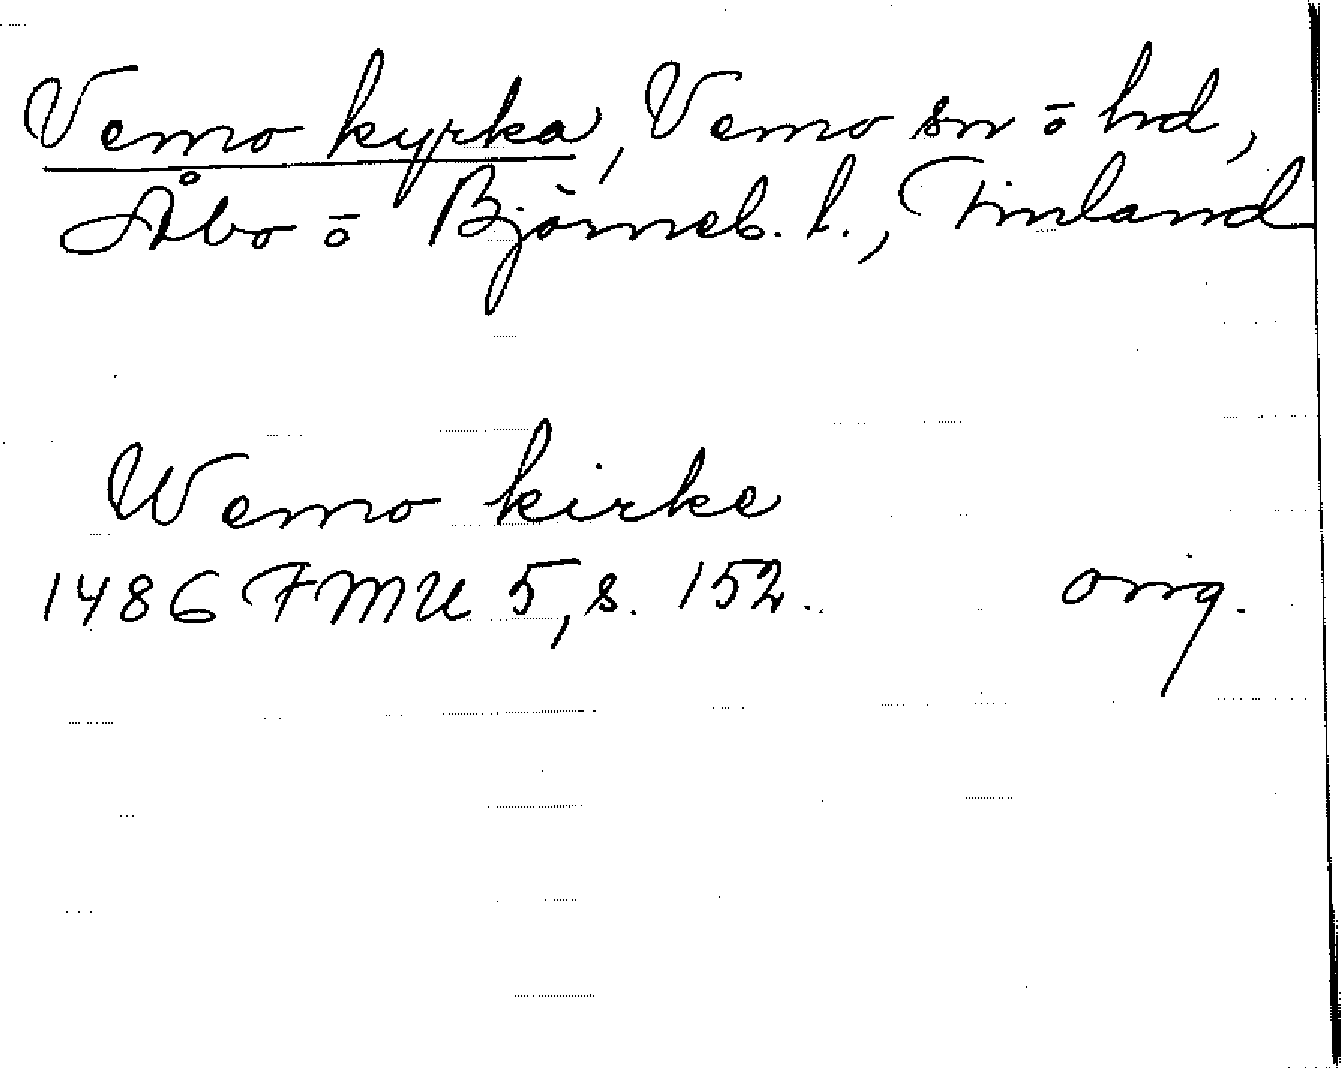 Vemo kyrka, Vemo sn ō hd,
Åbo ō Björneb. l., Finland
Wemo kirke
1486 FMU 5, s. 152. orig.